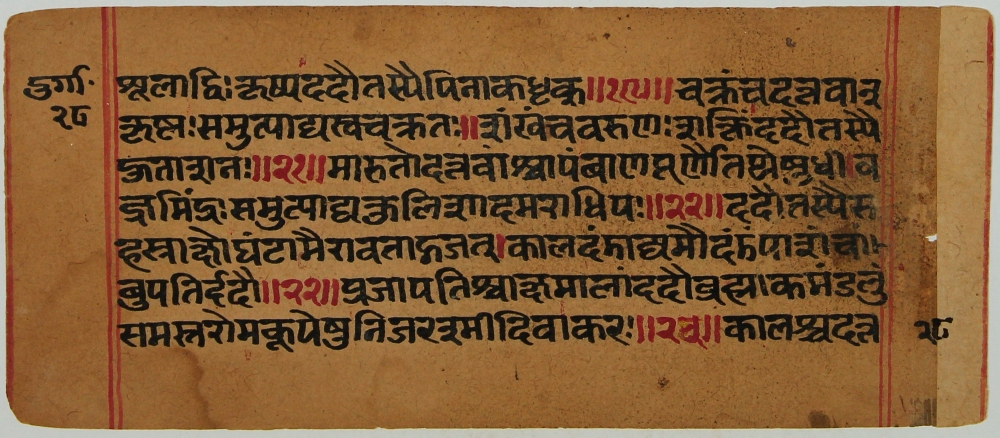 दुर्गा॰
२८
शूलाद्विनिःकृष्यददौतस्यैपिनाकधृक्॥१९॥चक्रंचदत्तवान्
कृष्णःसमुत्पाद्यस्वचक्रतः॥शंखंचवरुणःशक्तिंददौतस्यै
हुताशनः॥२१॥मारुतोदत्तवांश्चापंबाणपूर्णेतथेषुधी।व
ज्रमिंद्रःसमुत्पाद्यकुलिशादमराधिपः॥२२॥ददौतस्यैस
हस्राक्षोघंटामैरावताद्गजात्।कालदंडाद्यमोदंडंपाशंचां
बुपतिर्ददौ॥२२॥प्रजापतिश्चाक्षमालांददौब्रह्माकमंडलुं
समस्तरोमकूपेषुनिजरश्मीदिवाकरः॥२३॥कालश्चदत्त
२८